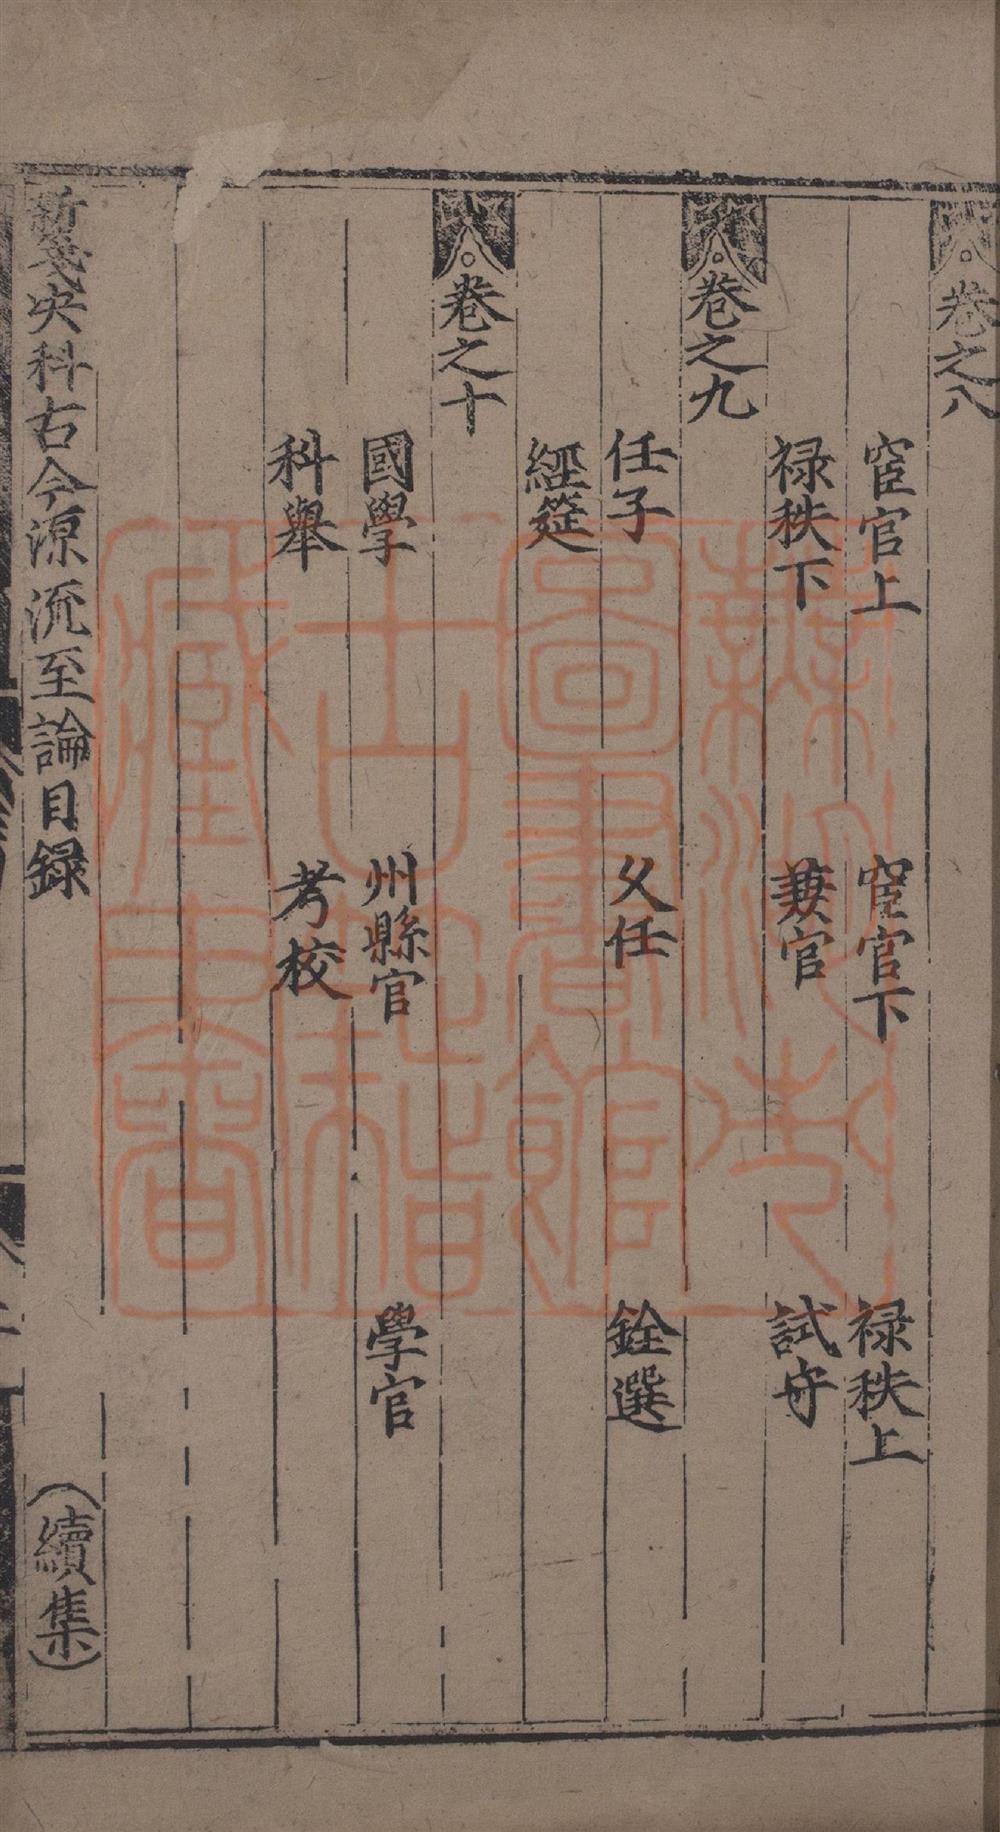 卷之八
宦官上 宦官下 禄秩上
禄秩下 兼官 試守
卷之九
任子 久任 銓選
經筵
卷之十
國學 州縣官 學官
科舉 考校
新箋决科古今源流至論目録 (續集)